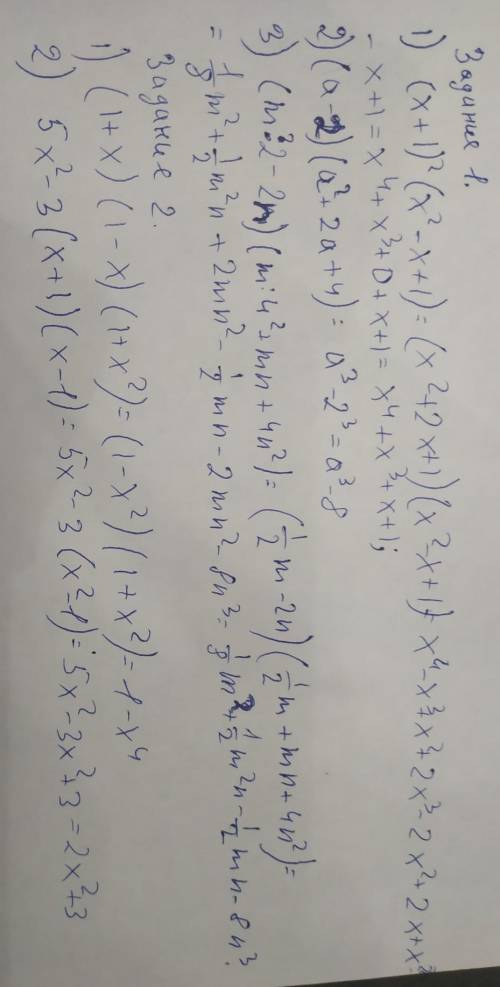 Задание 1.
1) (x+1)² (x²-x+1) = (x²+2x+1)(x²-x+1) = x⁴-x³+x²+2x³-2x²+2x+x²
-x+1 = x⁴+x³+0+x+1 = x⁴+x³+x+1;
2) (a-2)(a²+2a+4) = a³-2³ = a³-8
3) (m:2-2n)(m:4²+mn+4n²) = (1/2 m-2n)(1/2 m+mn+4n²) =
= 1/8 m²+1/2 m²n+2mn²-1/2 mn-2mn²-8n³ = 1/8 m²+1/2 m²n-1/2 mn-8n³.
Задание 2.
1) (1+x)(1-x)(1+x²) = (1-x²)(1+x²) = 1-x⁴
2) 5x²-3(x+1)(x-1) = 5x²-3(x²-1) = 5x²-3x²+3 = 2x²+3